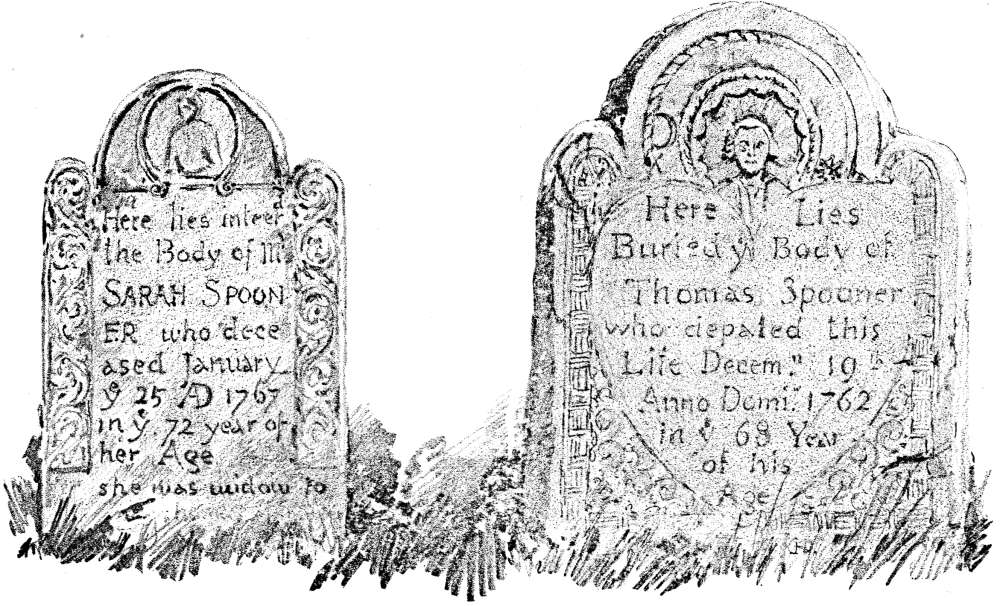 Here lies inter'd
the Body of Mrs
SARAH SPOON
ER who dece
ased January
ye 25 AD 1767
in ye 72 year of
her Age
she was widow to
Here Lies
Buried ye Body of
Thomas Spooner
who depated this
Life Decem,, 19th
Anno Domi,, 1762
in ye 68 Year
of his
Age